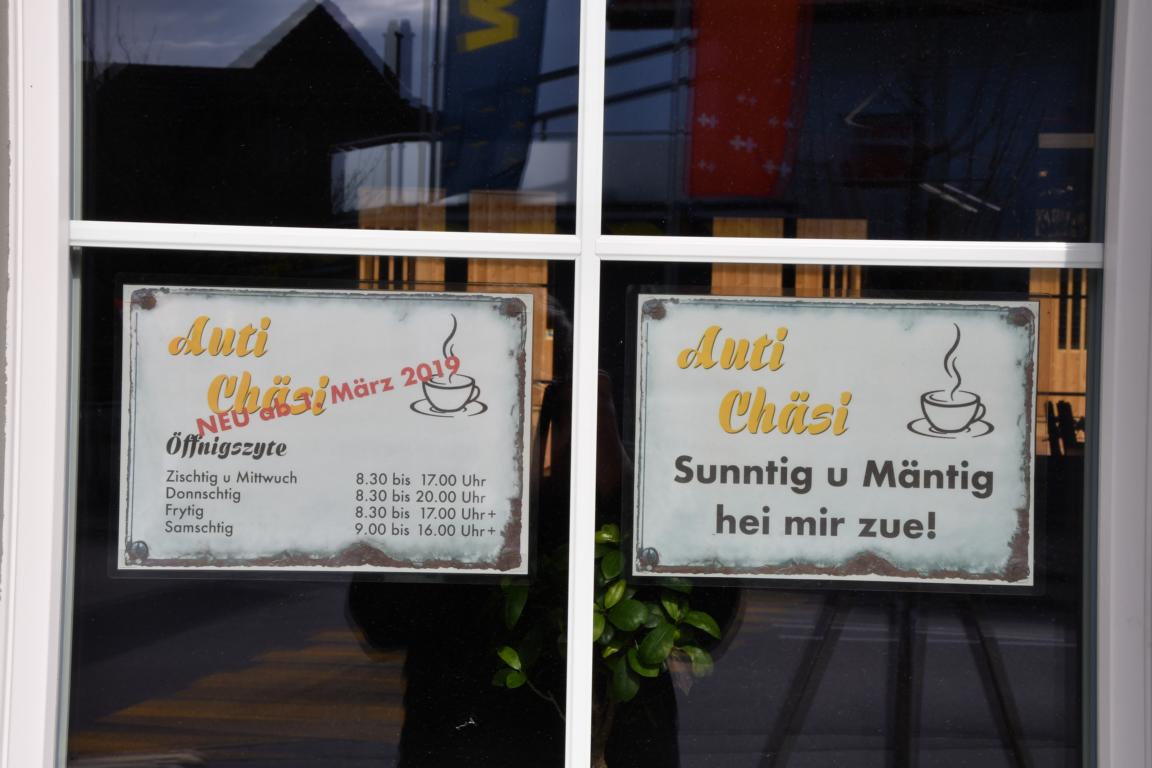 Auti
Chäsi
NEU ab 1. März 2019
Öffnigszyte
Zischtig u Mittwuch 8.30 bis 17.00 Uhr
Donnschtig 8.30 bis 20.00 Uhr
Frytig 8.30 bis 17.00 Uhr+
Samschtig 9.00 bis 16.00 Uhr+
Auti
Chäsi
Sunntig u Mäntig
hei mir zue!